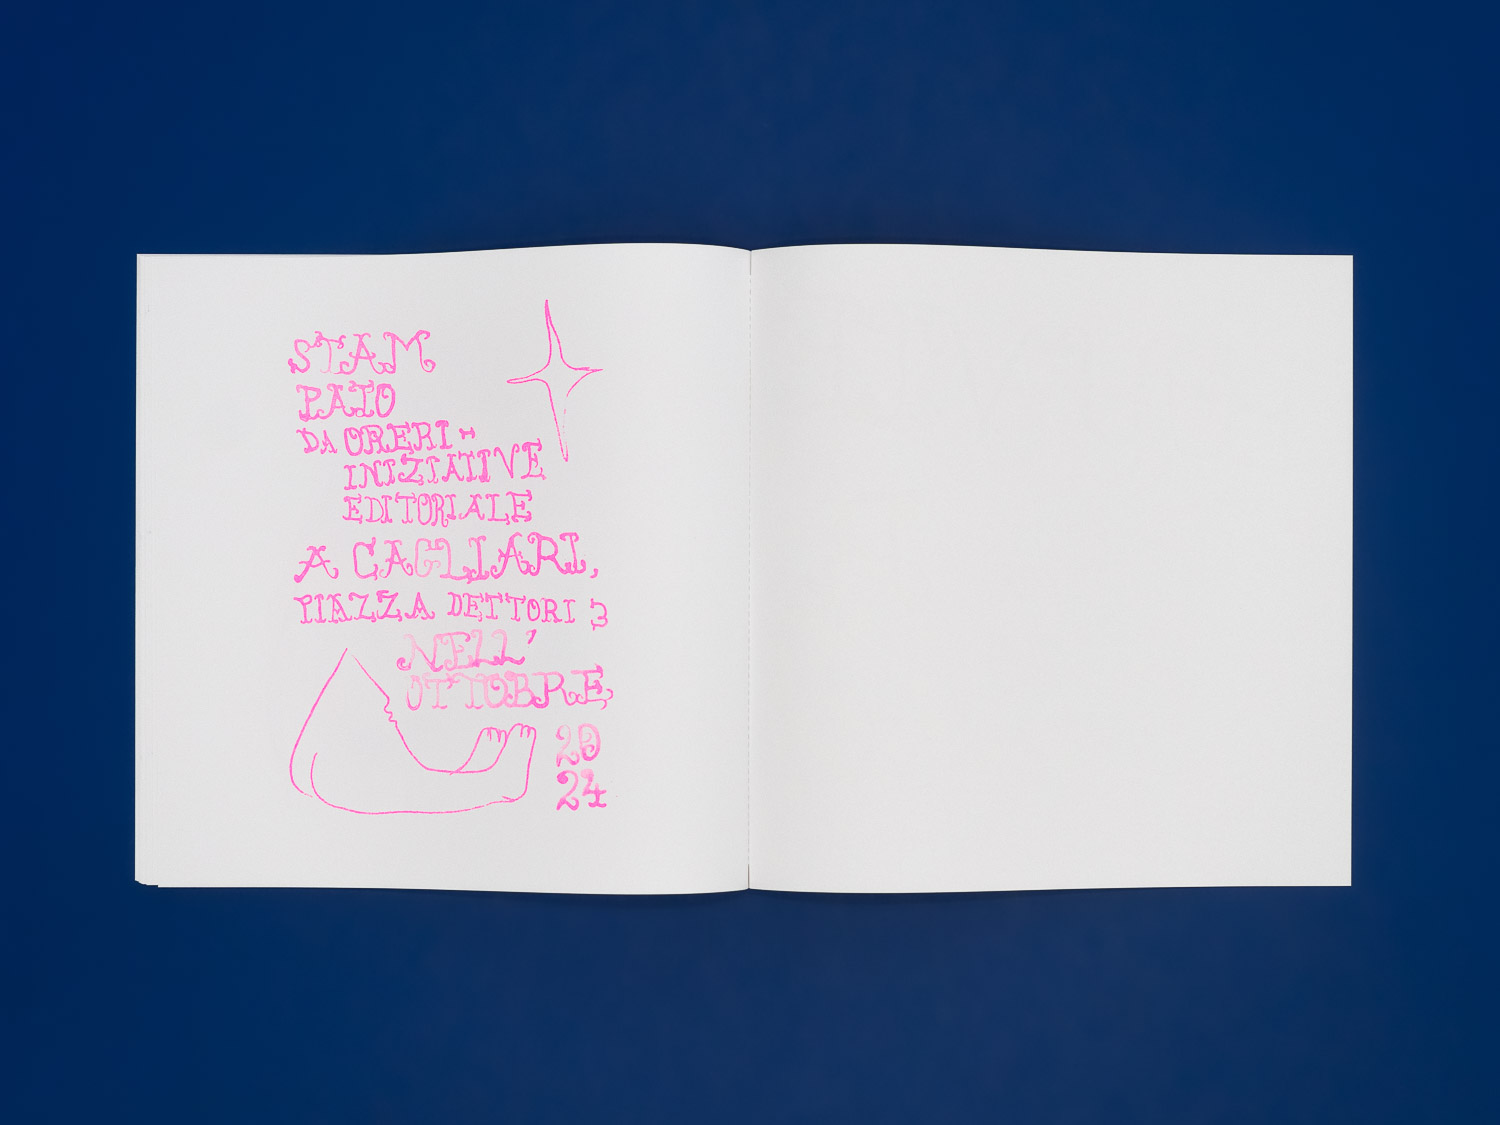 STAM
PATO
DA ORERI -
INIZIATIVE
EDITORIALE
A CAGLIARI,
PIAZZA DETTORI 3
NELL'
OTTOBRE,
20
24